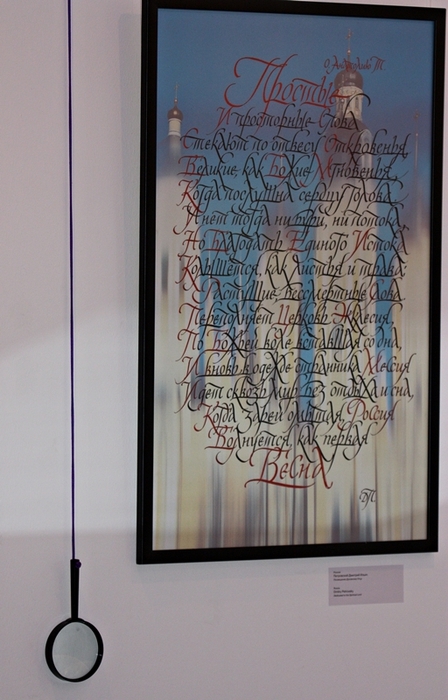 Простые
И просторные слова
Стекают по отвесу Откровенья,
Великие, как Божие Мгновенья,
Когда послушна сердцу голова,
И нет тогда ни бури, ни потока,
Но Благодать Единого Истока
Колышется, как листья и трава;
Растущие, бессмертные Слова
Переполняет Церковь Жалесия,
По Божьей воле вставшая со дна,
И вновь в одежде странника Мессия
Идет сквозь мир без отдыха и сна,
Когда Зарей омытая, Россия
Волнуется, как первая
Весна